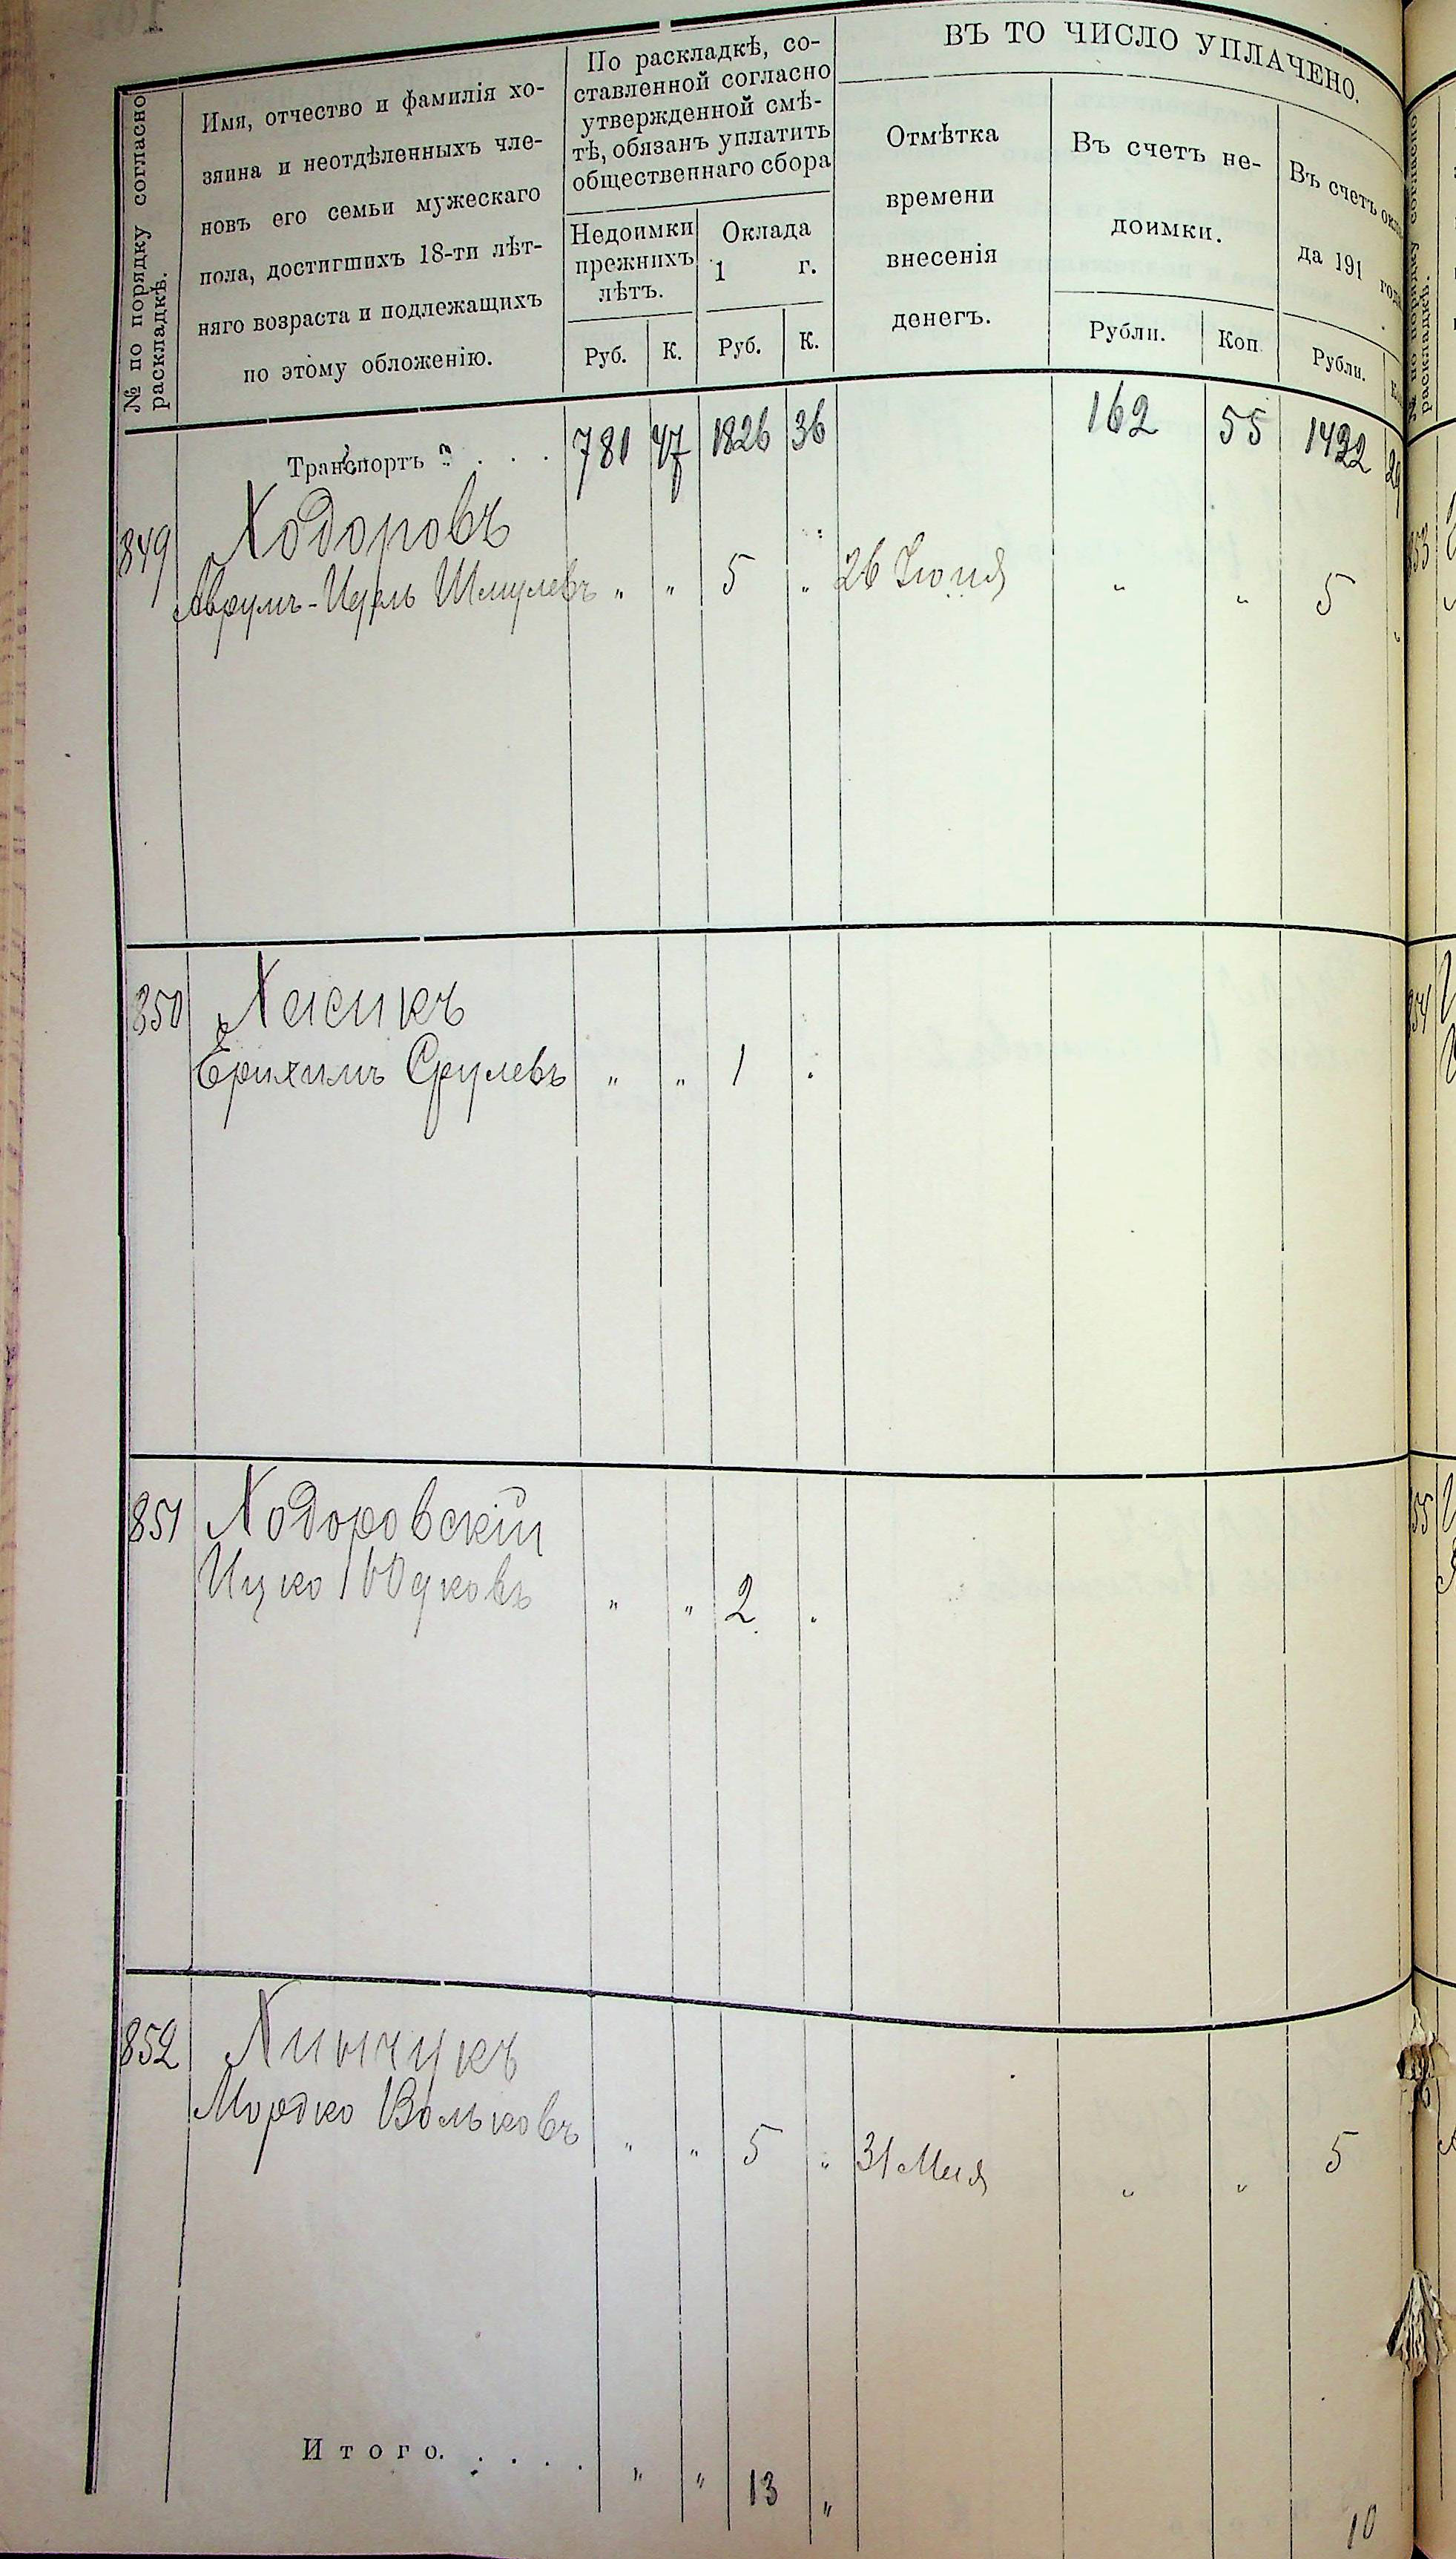 ВЪ ТО ЧИСЛО УПЛАЧЕНО.
№ по порядку согласно
раскладкѣ.
Имя, отчество и фамилія хо-
зяина и неотдѣленныхъ чле-
новъ его семьи мужескаго
пола, достигшихъ 18-ти лѣт-
няго возраста и подлежащихъ
по этому обложенію.
По раскладкѣ, со-
ставленной согласно
утвержденной смѣ-
тѣ, обязанъ уплатить
общественнаго сбора
Недоимки
прежнихъ
лѣтъ.
Оклада
1 г.
Руб. К. Руб. К.
Отмѣтка
времени
внесенія
денегъ.
Въ счетъ не-
доимки.
Рубли. Коп.
Въ счетъ окла-
да 191 года
Рубли.
Транспортъ . . . 781 47 1826 36 162 55 1422
849 Ходоровъ
Аврумъ-Идель Шмулевъ " " 5 " 26 Іюня " " 5 "
850 Хасикъ
Ерихимъ Срулевъ " " 1
851 Ходоровскій
Ицко Юдковъ " " 2
852 Хинчукъ
Мордко Вольковъ " " 5 " 31 Мая " " 5
Итого. . . . . " " 13 " 10